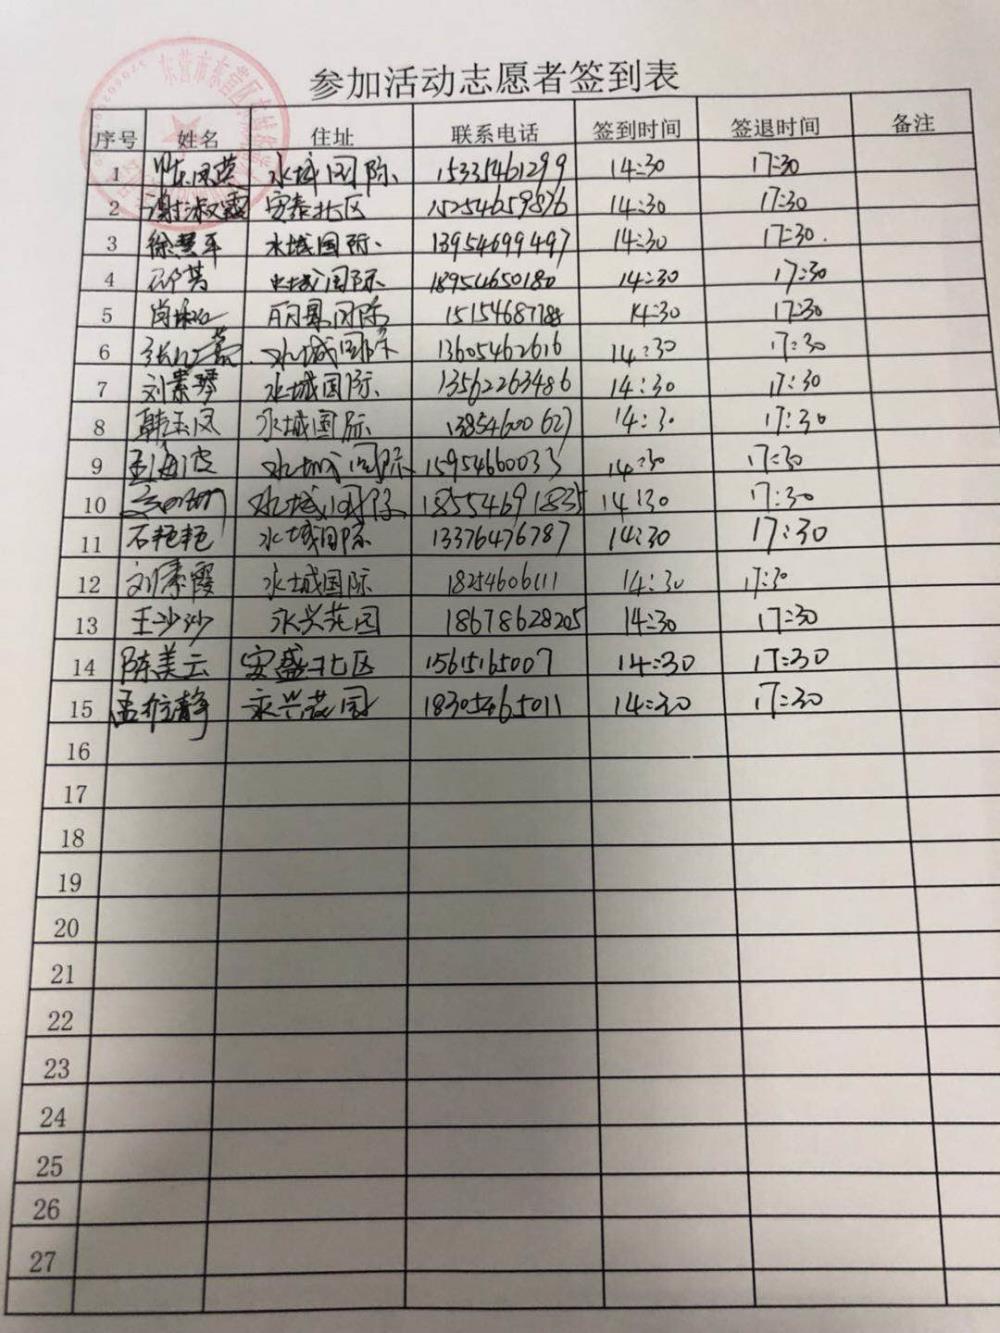 参加活动志愿者签到表
序号 姓名 住址 联系电话 签到时间 签退时间 备注
1 水城国际 15335461299 14:30 17:30
2 谢淑霞 安泰北区 15254659876 14:30 17:30
3 徐慧平 水城国际 13954699497 14:30 17:30
4 邵芳 水城国际 18954650180 14:30 17:30
5 丽景国际 14:30 17:30
6 水城国际 13605462616 14:30 17:30
7 刘素琴 水城国际 13562263486 14:30 17:30
8 韩玉凤 水城国际 13854600627 14:30 17:30
9 水城国际 15954660033 14:30 17:30
10 水城国际 18554691835 14:30 17:30
11 石艳艳 水城国际 13376476787 14:30 17:30
12 刘素霞 水城国际 18254606111 14:30 17:30
13 王沙沙 永兴花园 18678628205 14:30 17:30
14 陈美云 安盛北区 15615165007 14:30 17:30
15 永兴花园 18305465011 14:30 17:30
16
17
18
19
20
21
22
23
24
25
26
27